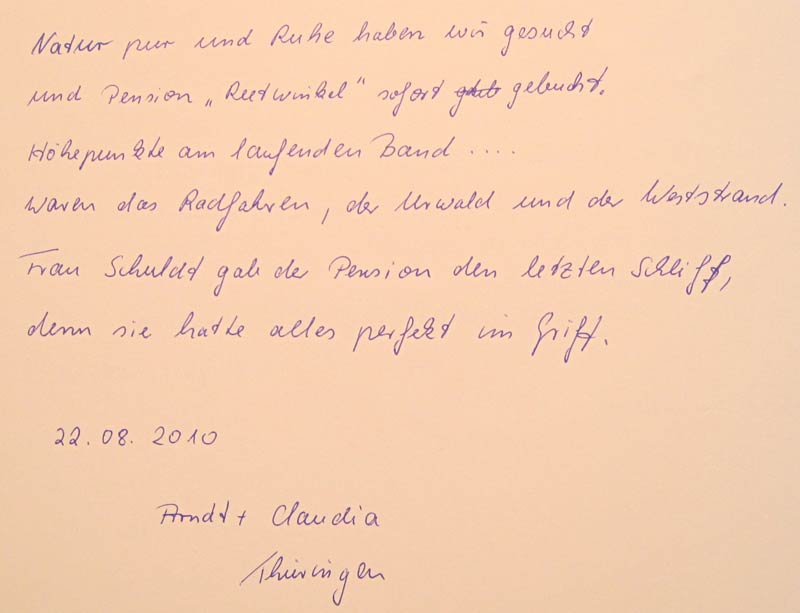 Natur pur und Ruhe haben wir gesucht
und Pension „Reetwinkel" sofort gebucht.
Höhepunkte am laufenden Band ....
waren das Radfahren, der Urwald und der Weststrand.
Frau Schuldt gab der Pension den letzten Schliff,
denn sie hatte alles perfekt im Griff.
22.08.2010
Arndt + Claudia
Thüringen